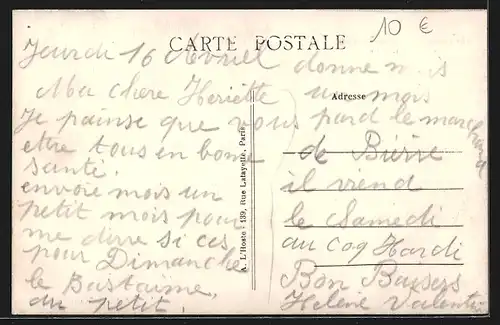 10 €
CARTE POSTALE
Jeurdi 16 Avriel
Ma chere Heriette
Je painse que vous
ettre tous en bone
santé.
envoie mois un
petit mois pour
me dirre si ces
pour Dimanche
le Bastaime,
du petit.
A. L'Hoste - 139, Rue Lafayette, Paris
Adresse
donne mois
un mois
par le marchand
de Bierre
il viend
le Samedi
au Coq Hardi
Bon Baisers
Helene Valentin